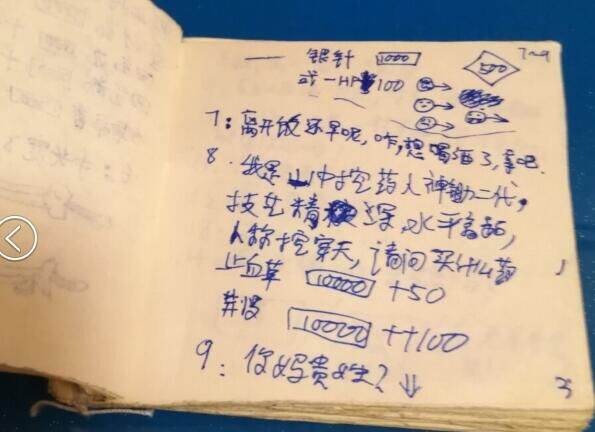 7~9
银针 1000 500
或一HP 100
7：离开饭还早呢，咋，想喝酒了，拿吧.
8．我是山中挖药人神锄二代，
技艺精深，水平高超，
人称挖穿天，请问买什么药
止血草 10000 +50
10000 ++100
9：你好贵姓？↓